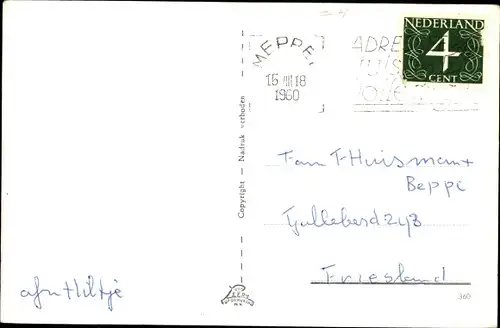 NEDERLAND
4
CENT
MEPPEL
15 VIII 18
1960
ADRE
Copyright - Nadruk verboden
Fam T Huisman +
Beppe
Friesland
afz Hiltje
360